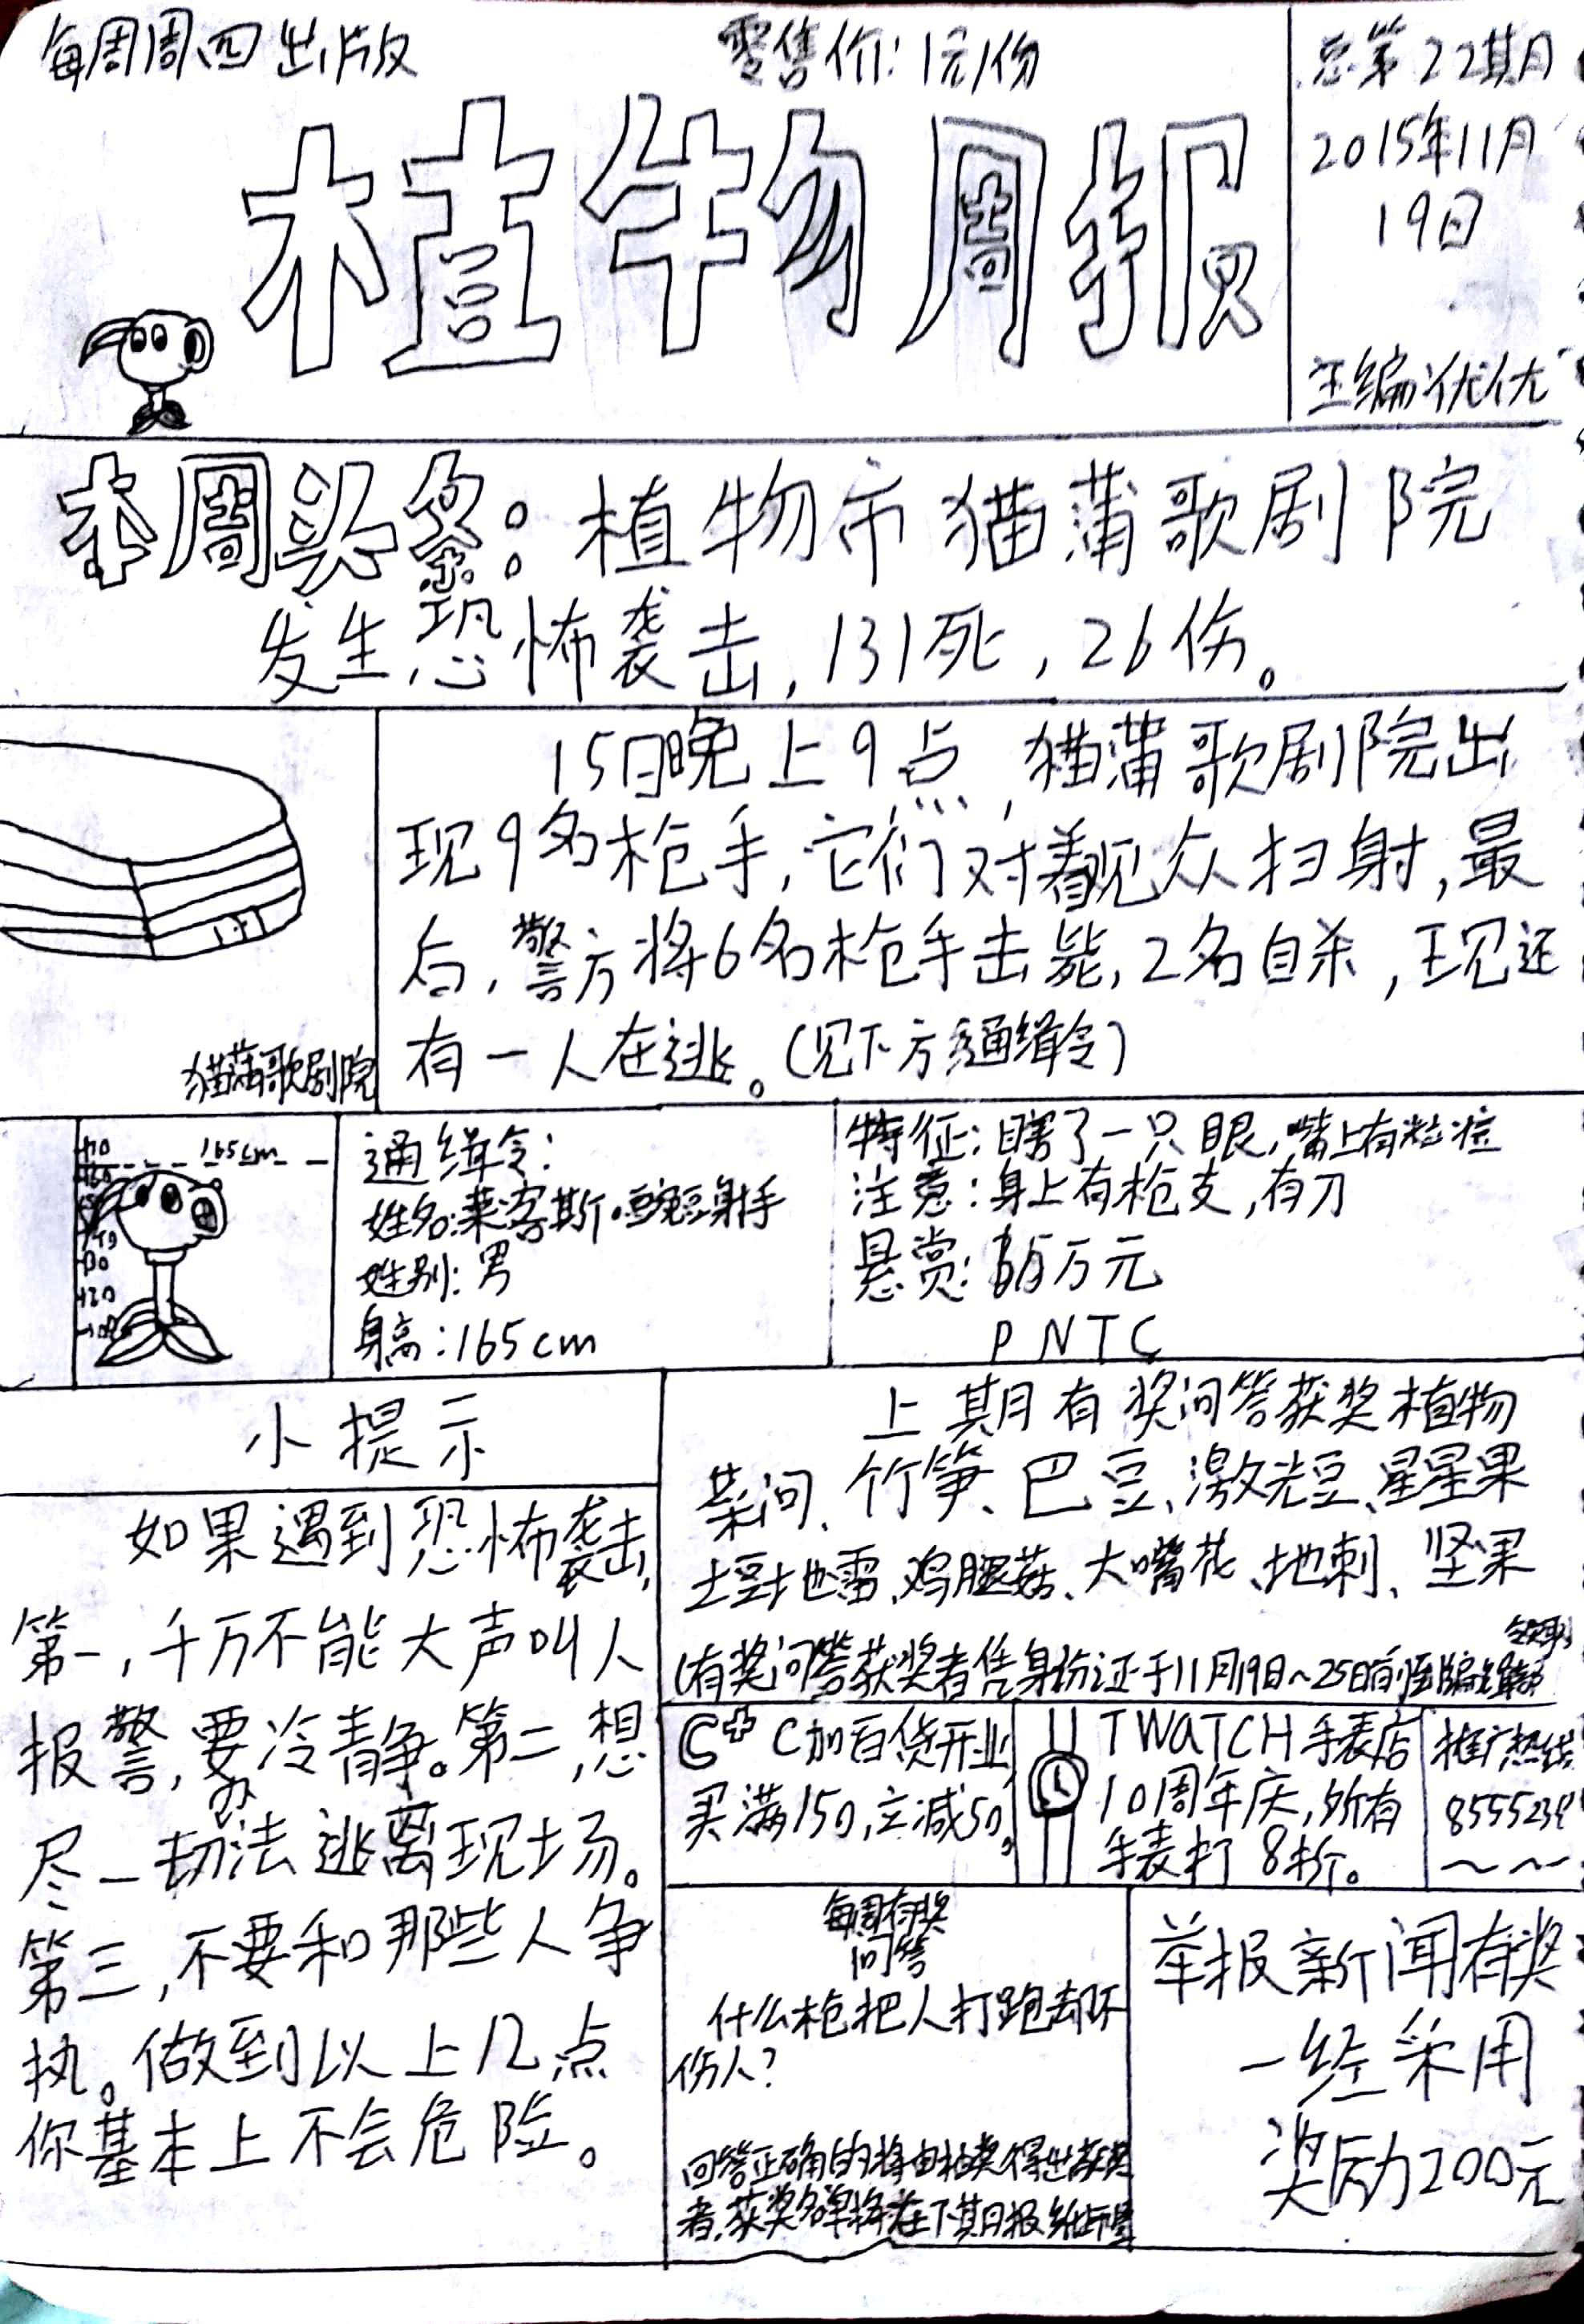 每周周四出版
零售价:1元/份
总第22期
2015年11月
19日
主编:优优
植物周报
本周头条:植物市猫蒲歌剧院
发生恐怖袭击,131死,26伤。
15日晚上9点,猫蒲歌剧院出
现9名枪手,它们对着观众扫射,最
后,警方将6名枪手击毙,2名自杀,现还
有一人在逃。(见下方通缉令)
猫蒲歌剧院
165cm
通缉令:
姓名:莱客斯·豌豆射手
姓别:男
身高:165cm
特征:瞎了一只眼,嘴上有粒痘
注意:身上有枪支,有刀
悬赏:万元
PNTC
小提示
如果遇到恐怖袭击,
第一,千万不能大声叫人
报警,要冷静。第二,想
尽一切办法逃离现场。
第三,不要和那些人争
执。做到以上几点
你基本上不会危险。
上期有奖问答获奖植物
菜问、竹笋、巴豆、激光豆、星星果
土豆地雷、鸡腿菇、大嘴花、地刺、坚果
(有奖问答获奖者凭身份证于11月19日~25日前
C+ C加百货开业,
买满150,立减50。
TWATCH手表店
10周年庆,所有
手表打8折。
推广热线
8555239
~~
每周有奖
问答
什么枪把人打跑却不
伤人?
回答正确的将由抽奖得出获奖
者,获奖名单将在下期报纸
举报新闻有奖
一经采用
奖励200元